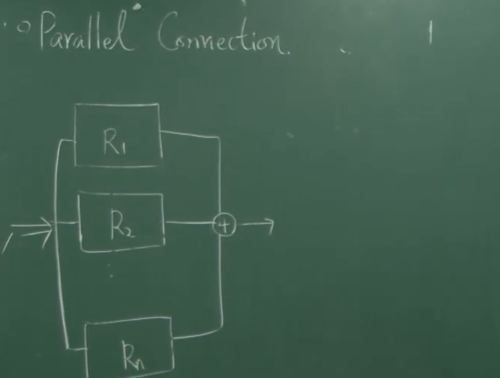 Parallel Connection.
R1
R2
+
Rn